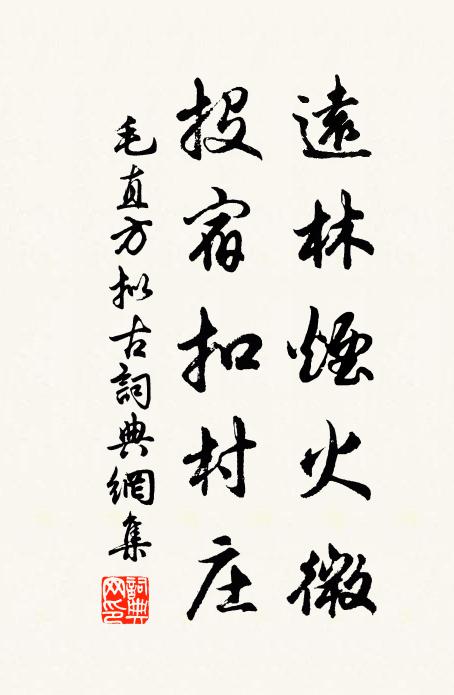 遠林煙火微
投宿扣村庄
毛直方拟古詞典網集
詞典網印